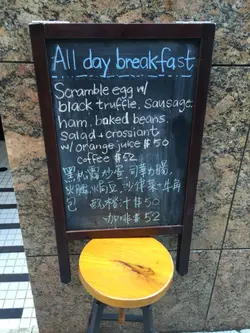 All day breakfast
Scramble egg w/
black truffle, Sausage,
ham, baked beans,
Salad + crossiant
w/ orange juice $50
coffee $52
黑松露炒蛋,司華力腸,
火腿,焗豆,沙律菜,牛角
包 跟橙汁 $50
咖啡 $52